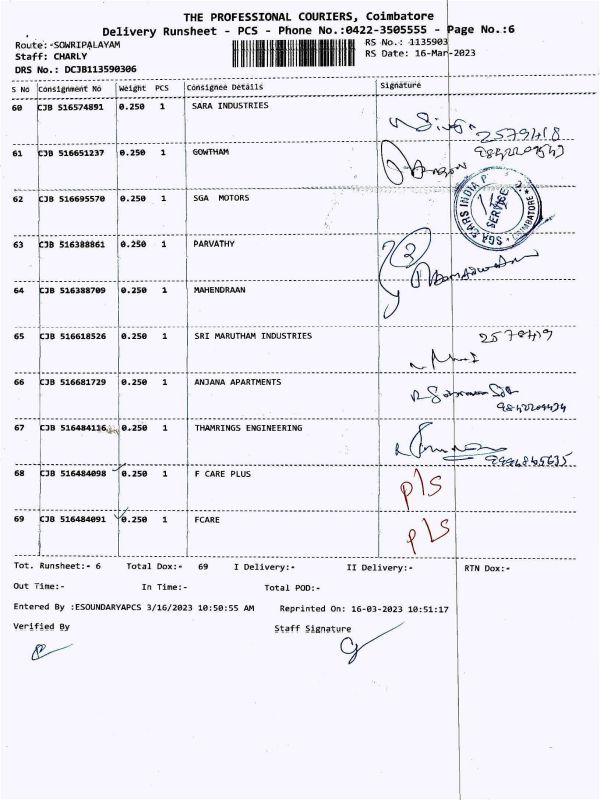 THE PROFESSIONAL COURIERS, Coimbatore
Delivery Runsheet - PCS - Phone No.:0422-3505555 - Page No.:6
Route:-SOWRIPALAYAM
RS No.: 1135903
Staff: CHARLY
RS Date: 16-Mar-2023
DRS No.: DCJB113590306
S No Consignment No Weight PCS Consignee Details Signature
60 CJB 516574891 0.250 1 SARA INDUSTRIES
61 CJB 516651237 0.250 1 GOWTHAM
62 CJB 516695570 0.250 1 SGA MOTORS
SERVICE
63 CJB 516388861 0.250 1 PARVATHY
64 CJB 516388709 0.250 1 MAHENDRAAN
65 CJB 516618526 0.250 1 SRI MARUTHAM INDUSTRIES
66 CJB 516681729 0.250 1 ANJANA APARTMENTS
67 CJB 516484116 0.250 1 THAMRINGS ENGINEERING
68 CJB 516484098 0.250 1 F CARE PLUS P/S
69 CJB 516484091 0.250 1 FCARE P/S
Tot. Runsheet:- 6 Total Dox:- 69 I Delivery:- II Delivery:- RTN Dox:-
Out Time:- In Time:- Total POD:-
Entered By :ESOUNDARYAPCS 3/16/2023 10:50:55 AM Reprinted On: 16-03-2023 10:51:17
Verified By Staff Signature